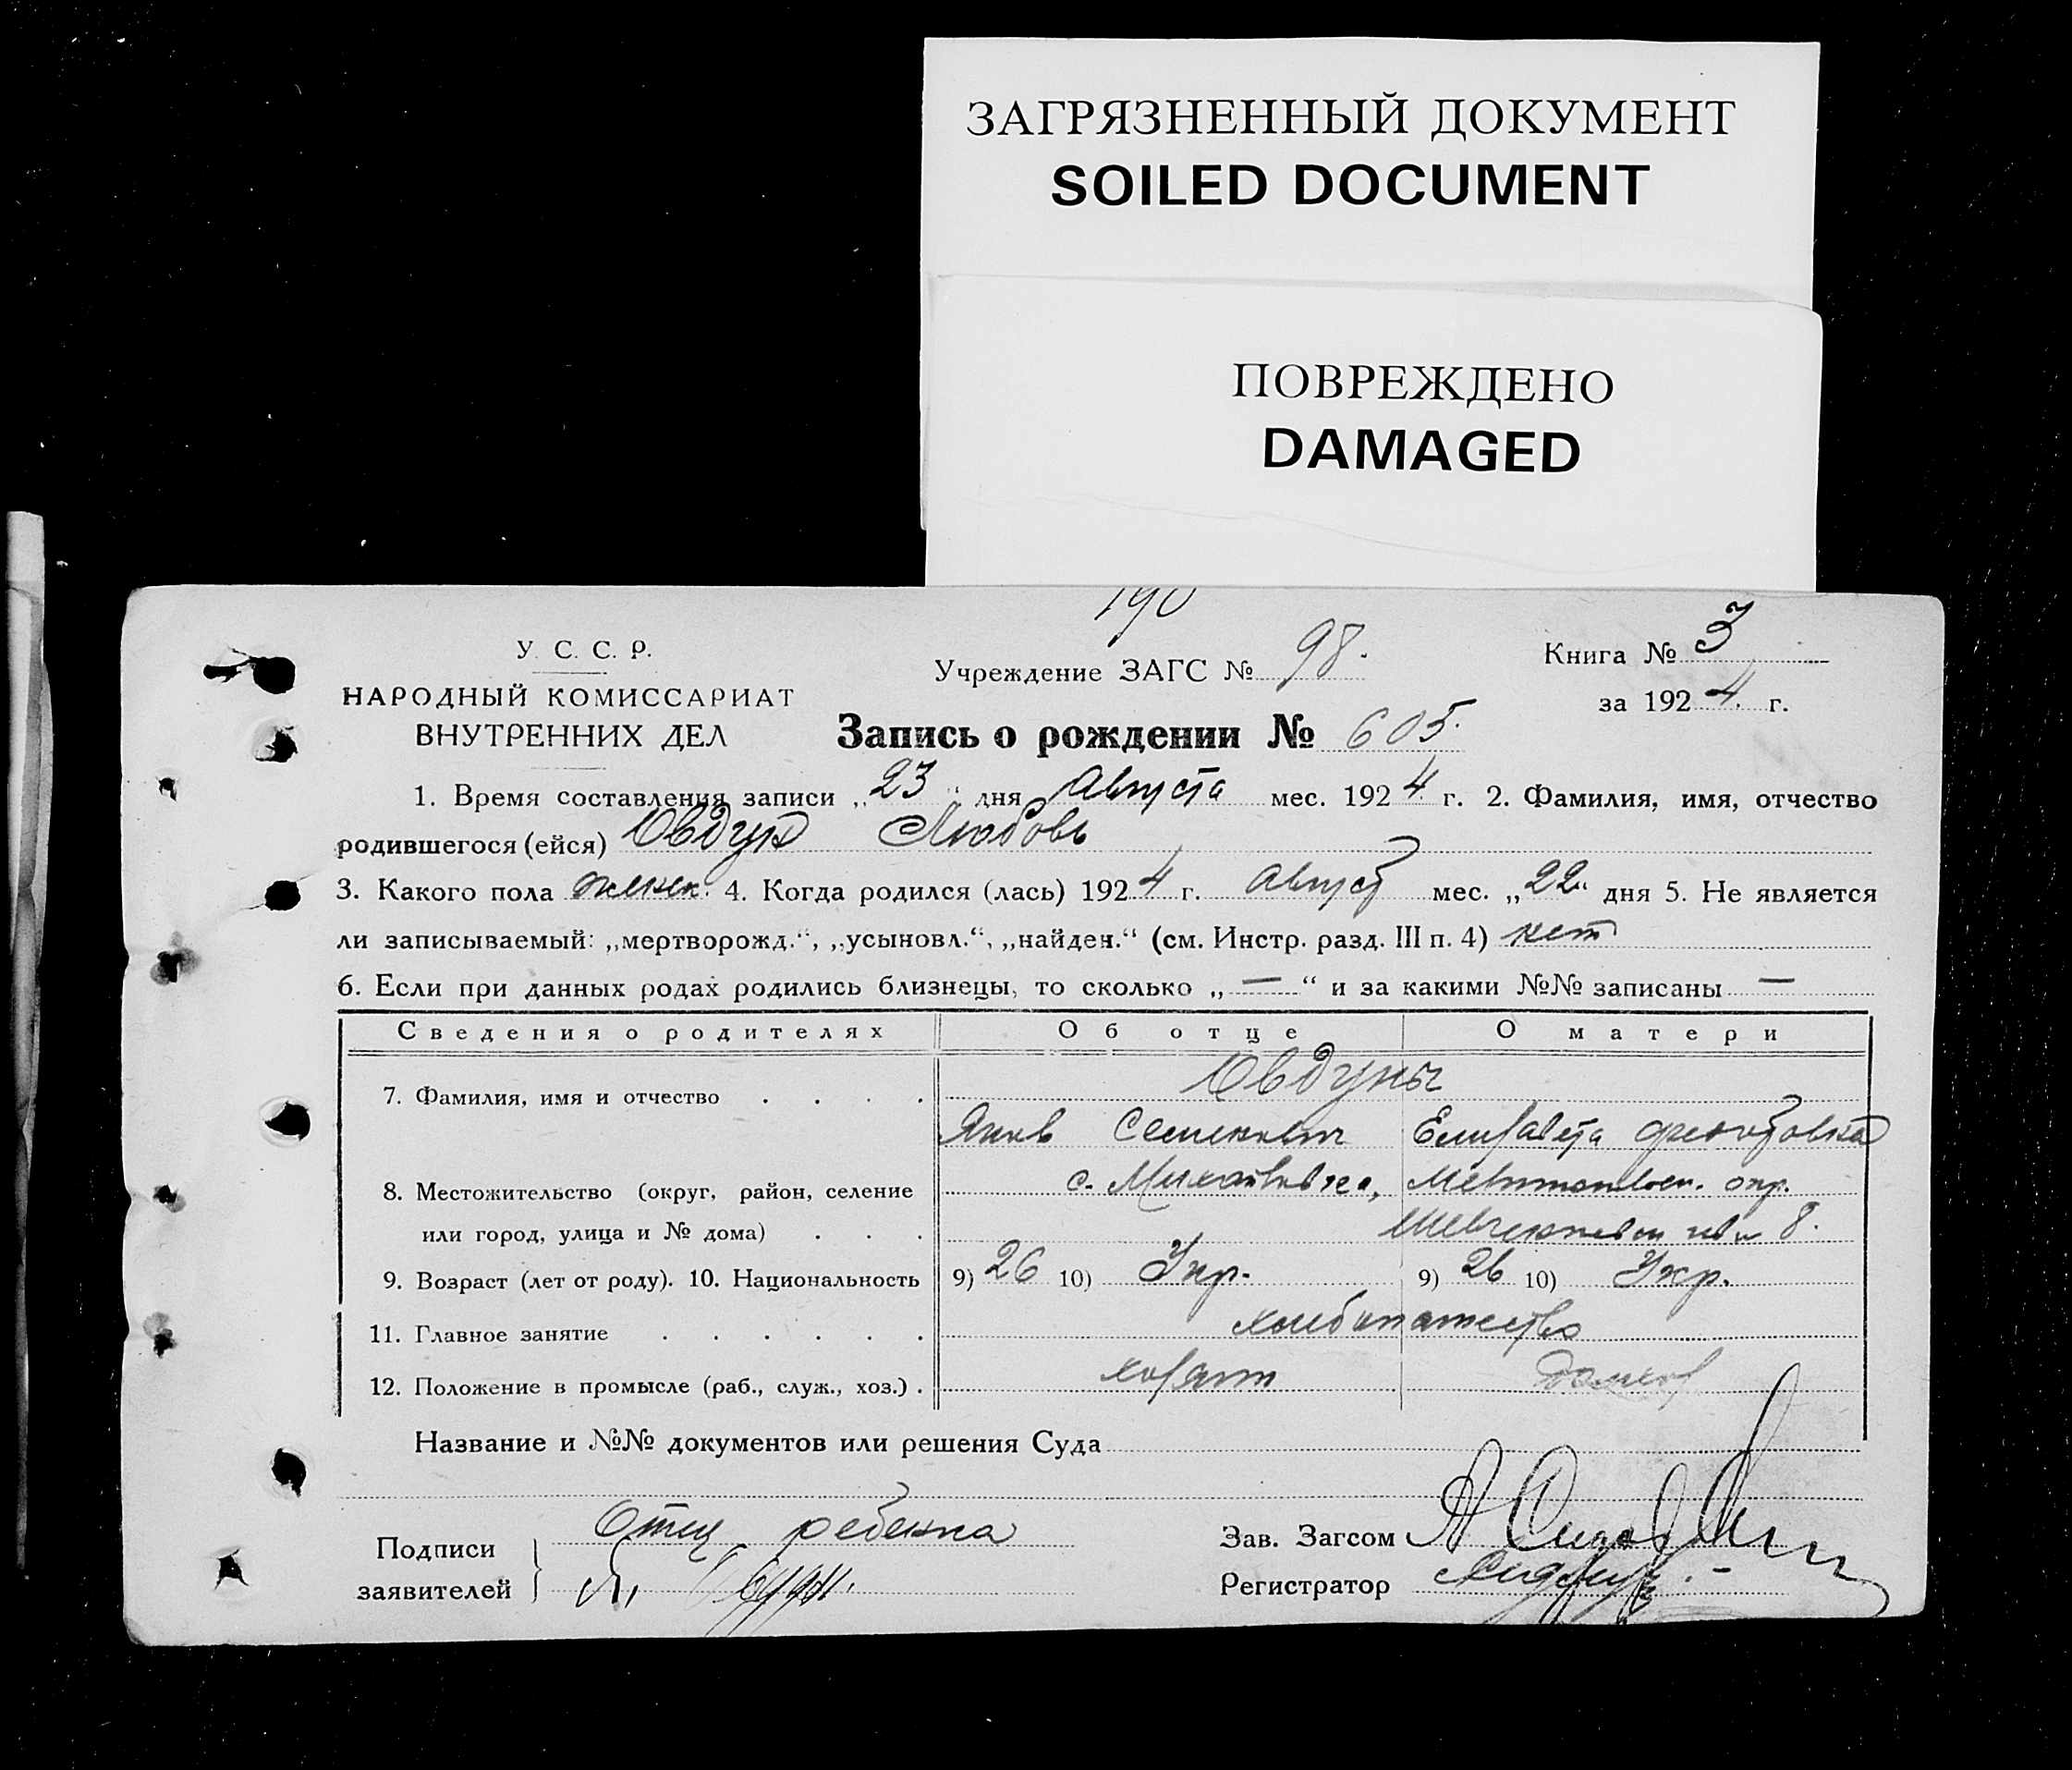 ЗАГРЯЗНЕННЫЙ ДОКУМЕНТ
SOILED DOCUMENT
ПОВРЕЖДЕНО
DAMAGED
190
У. С. С. Р.
НАРОДНЫЙ КОМИССАРИАТ
ВНУТРЕННИХ ДЕЛ
Учреждение ЗАГС № 98.
Книга № 3
за 1924. г.
Запись о рождении № 605.
1. Время составления записи „23“ дня Августа мес. 1924 г. 2. Фамилия, имя, отчество
родившегося (ейся) Овдун Любовь
3. Какого пола женск. 4. Когда родился (лась) 1924 г. Август мес. „22“ дня 5. Не является
ли записываемый: „мертворожд.“, „усыновл.“, „найден.“ (см. Инстр. разд. III п. 4) нет
6. Если при данных родах родились близнецы, то сколько „—“ и за какими №№ записаны —
Сведения о родителях Об отце О матери
Овдуны
7. Фамилия, имя и отчество . . . .
Яков Семенович Елизавета
8. Местожительство (округ, район, селение с. окр.
или город, улица и № дома) . . . 8.
9. Возраст (лет от роду). 10. Национальность 9) 26 10) Укр. 9) 26 10) Укр.
11. Главное занятие . . . . . . хлебопашество
12. Положение в промысле (раб., служ., хоз.) . хозяин
Название и №№ документов или решения Суда
Подписи заявителей
Отец ребенка
Я. Овдун.
Зав. Загсом
Регистратор